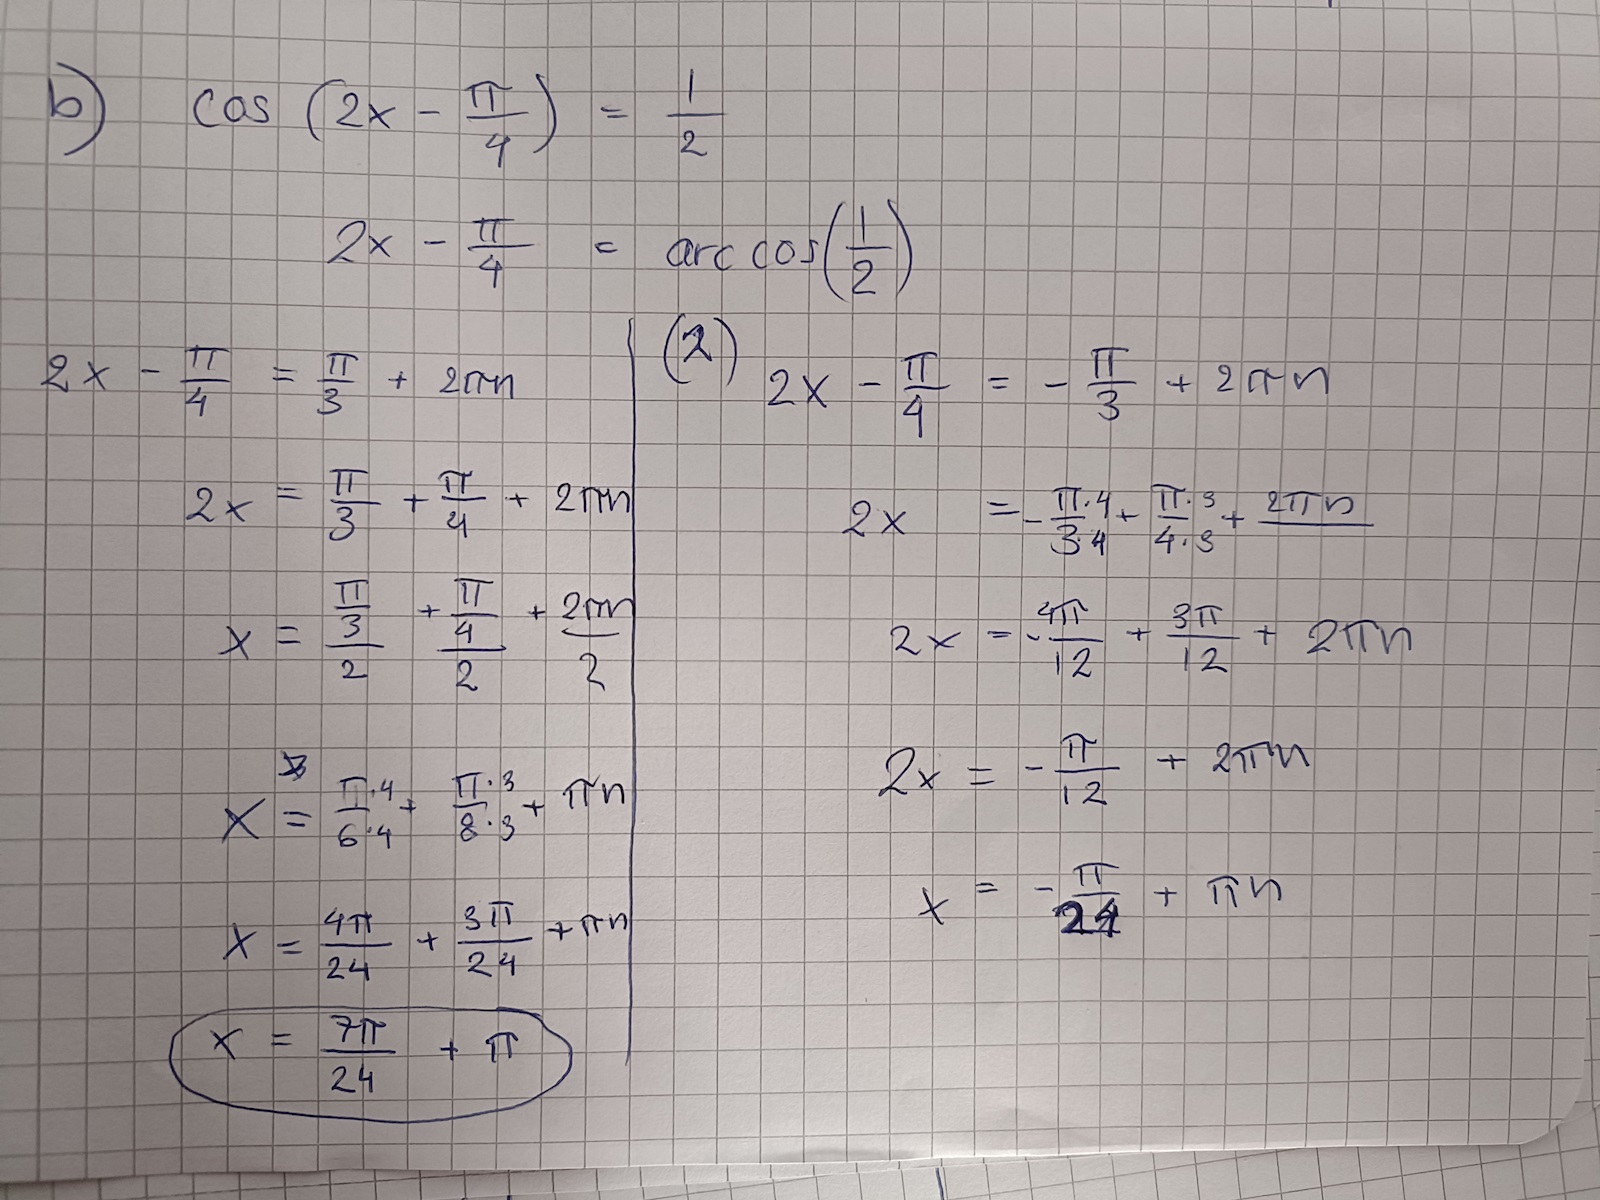 b) cos (2x - π/4) = 1/2
2x - π/4 = arc cos(1/2)
2x - π/4 = π/3 + 2πn
2x = π/3 + π/4 + 2πn
x = (π/3)/2 + (π/4)/2 + 2πn/2
x = π·4/6·4 + π·3/8·3 + πn
x = 4π/24 + 3π/24 + πn
x = 7π/24 + π
(2) 2x - π/4 = - π/3 + 2πn
2x = - π·4/3·4 + π·3/4·3 + 2πn
2x = - 4π/12 + 3π/12 + 2πn
2x = - π/12 + 2πn
x = - π/24 + πn